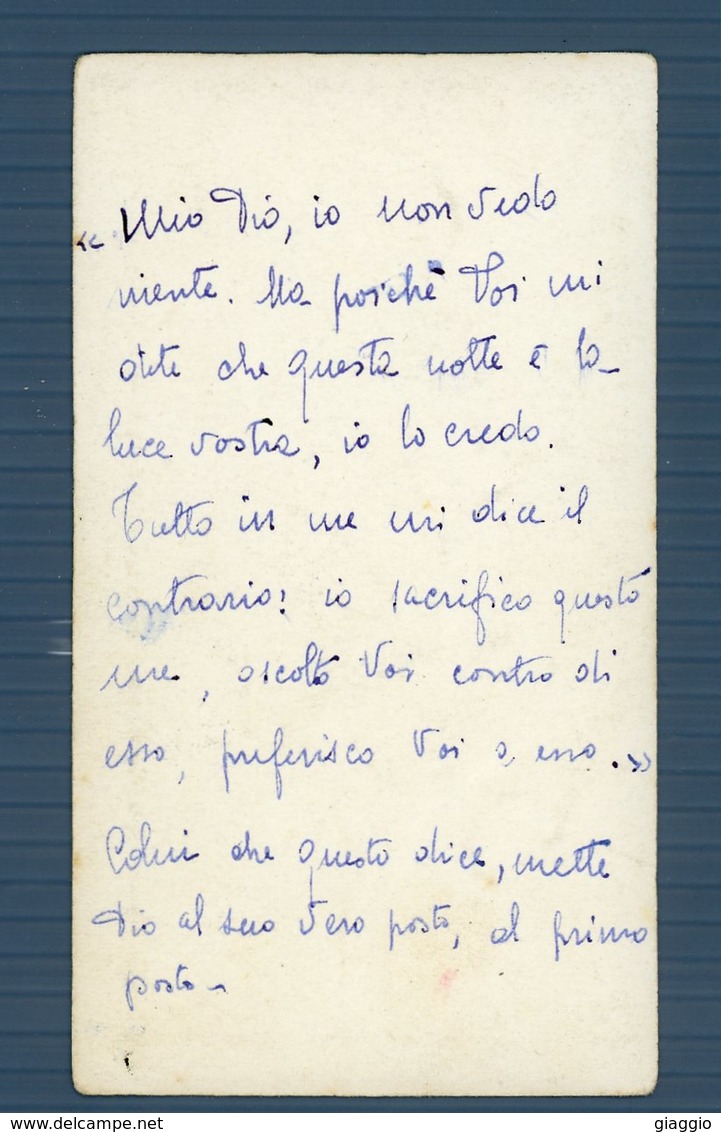 « Mio Dio, io non vedo
niente. Ma poichè Voi mi
dite che questa notte è la
luce vostra, io lo credo.
Tutto in me mi dice il
contrario: io sacrifico questo
me, ascolto Voi contro di
esso, preferisco Voi a esso. »
Colui che questo dice, mette
Dio al suo vero posto, al primo
posto -
www.delcampe.net
giaggio